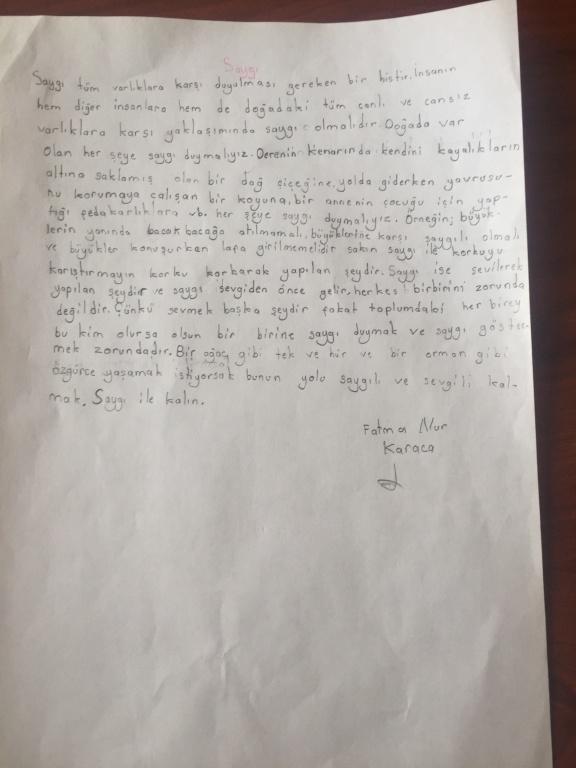 Saygı
Saygı tüm varlıklara karşı duyulması gereken bir histir. İnsanın
hem diğer insanlara hem de doğadaki tüm canlı ve cansız
varlıklara karşı yaklaşımında saygı olmalıdır. Doğada var
olan her şeye saygı duymalıyız. Derenin kenarında kendini kayalıkların
altına saklamış olan bir dağ çiçeğine, yolda giderken yavrusu-
nu korumaya çalışan bir koyuna, bir annenin çocuğu için yap-
tığı fedakarlıklara vb. her şeye saygı duymalıyız. Örneğin; büyük-
lerin yanında bacak bacağa atılmamalı, büyüklerine karşı saygılı olmalı
ve büyükler konuşurken lafa girilmemelidir sakın saygı ile korkuyu
karıştırmayın korku korkarak yapılan şeydir. Saygı ise sevilerek
yapılan şeydir ve saygı sevgiden önce gelir, herkes birbirini zorunda
değildir. Çünkü sevmek başka şeydir fakat toplumdabi her birey
bu kim olursa olsun bir birine saygı duymak ve saygı göster-
mek zorundadır. Bir ağaç gibi tek ve hür ve bir orman gibi
özgürce yaşamak istiyorsak bunun yolu saygılı ve sevgili kal-
mak. Saygı ile kalın.
Fatma Nur
Karaca